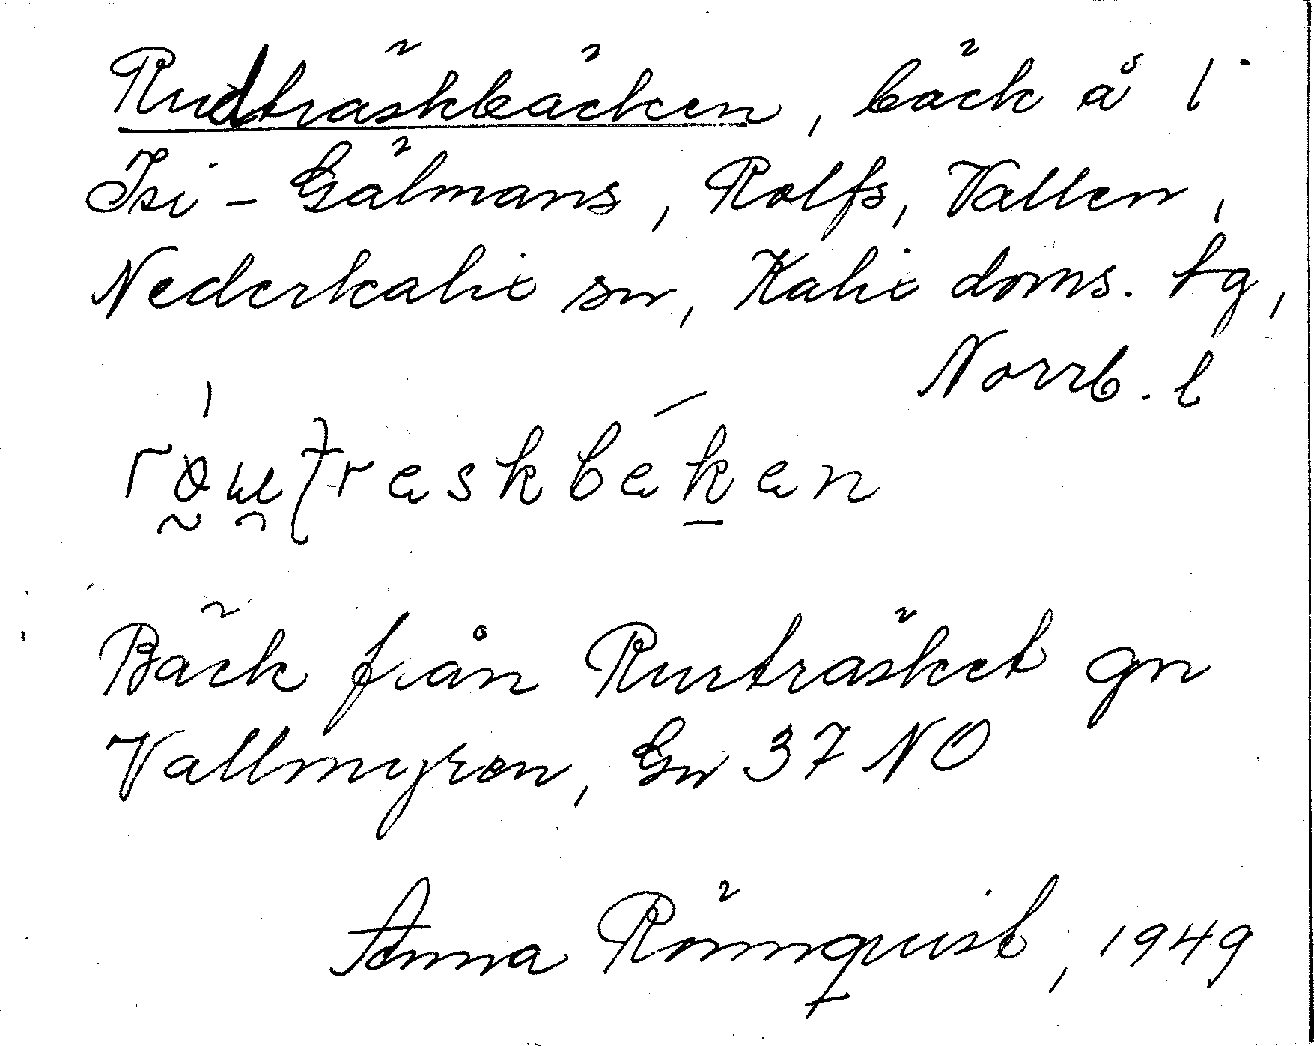 Rudträskbäcken, bäck å l
Isi-Gälmans, Rolfs, Vallen,
Nederkalix sn, Kalix doms. tg,
Norrb. l
Bäck från Rurträsket gn
Vallmyren, Gw 37 NO
Anna Rönnquist, 1949